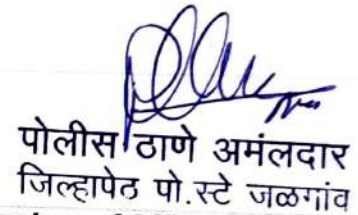 पोलीस ठाणे अमंलदार
जिल्हापेठ पो.स्टे जळगांव